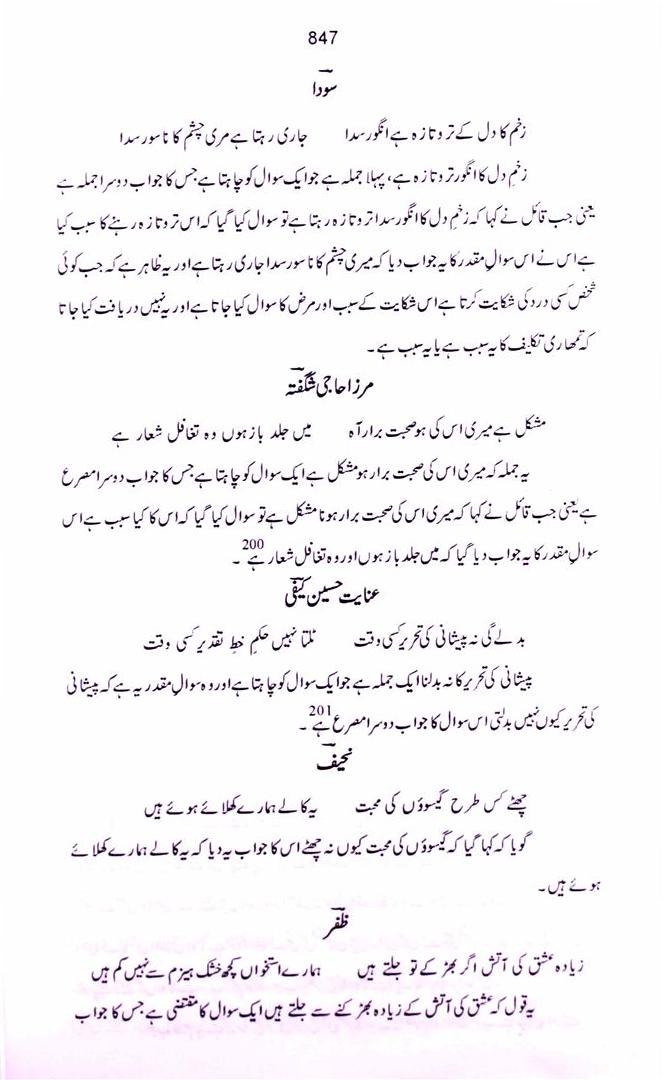 847
سودا
زخم کا دل کے تر و تازہ ہے انگور سدا جاری رہتا ہے مری چشم کا ناسور سدا
زخمِ دل کا انگور تر و تازہ ہے، پہلا جملہ ہے جو ایک سوال کو چاہتا ہے جس کا جواب دوسرا جملہ ہے
یعنی جب قائل نے کہا کہ زخمِ دل کا انگور سدا تر و تازہ رہتا ہے تو سوال کیا گیا کہ اس تر و تازہ رہنے کا سبب کیا
ہے اس نے اس سوالِ مقدر کا یہ جواب دیا کہ میری چشم کا ناسور سدا جاری رہتا ہے اور یہ ظاہر ہے کہ جب کوئی
شخص کسی درد کی شکایت کرتا ہے اس شکایت کے سبب اور مرض کا سوال کیا جاتا ہے اور یہ نہیں دریافت کیا جاتا
کہ تمھاری تکلیف کا یہ سبب ہے یا یہ سبب ہے۔
مرزا حاجی شگفتہ
مشکل ہے میری اس کی ہو صحبت برار آہ میں جلد باز ہوں وہ تغافل شعار ہے
یہ جملہ کہ میری اس کی صحبت برار ہو مشکل ہے ایک سوال کو چاہتا ہے جس کا جواب دوسرا مصرع
ہے یعنی جب قائل نے کہا کہ میری اس کی صحبت برار ہونا مشکل ہے تو سوال کیا گیا کہ اس کا کیا سبب ہے اس
سوالِ مقدر کا یہ جواب دیا گیا کہ میں جلد باز ہوں اور وہ تغافل شعار ہے200۔
عنایت حسین کیفی
بدلے گی نہ پیشانی کی تحریر کسی وقت ٹلتا نہیں حکمِ خطِ تقدیر کسی وقت
پیشانی کی تحریر کا نہ بدلنا ایک جملہ ہے جو ایک سوال کو چاہتا ہے اور وہ سوالِ مقدر یہ ہے کہ پیشانی
کی تحریر کیوں نہیں بدلتی اس سوال کا جواب دوسرا مصرع ہے201۔
نحیف
چھٹے کس طرح گیسوؤں کی محبت یہ کالے ہمارے کھلائے ہوئے ہیں
گویا کہ کہا گیا کہ گیسوؤں کی محبت کیوں نہ چھٹے اس کا جواب یہ دیا کہ یہ کالے ہمارے کھلائے
ہوئے ہیں۔
ظفر
زیادہ عشق کی آتش اگر بھڑکے تو جلتے ہیں ہمارے استخواں کچھ خشک ہیزم سے نہیں کم ہیں
یہ قول کہ عشق کی آتش کے زیادہ بھڑکنے سے جلتے ہیں ایک سوال کا مقتضی ہے جس کا جواب